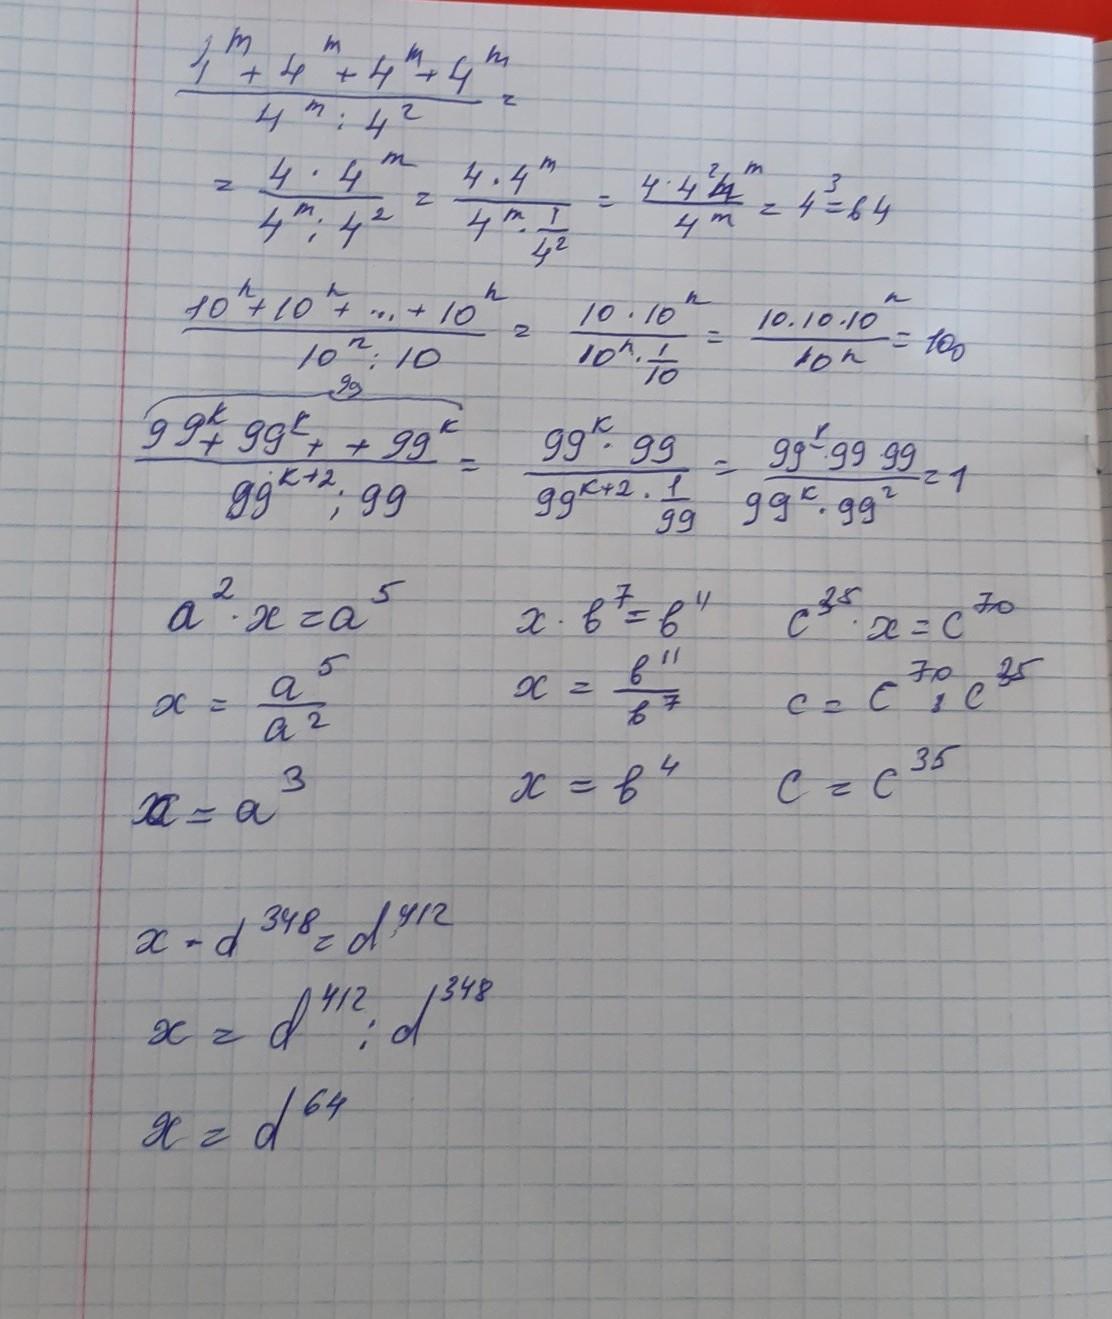 1^m + 4^m + 4^m + 4^m / 4^m : 4^2 =
= 4 · 4^m / 4^m : 4^2 = 4 · 4^m / 4^m · 1/4^2 = 4 · 4^2 4^m / 4^m = 4^3 = 64
10^n + 10^n + ... + 10^n / 10^n : 10 = 10 · 10^n / 10^n · 1/10 = 10 · 10 · 10^n / 10^n = 100
99
99^k + 99^k + + 99^k / 99^k+2 : 99 = 99^k · 99 / 99^k+2 · 1/99 = 99^k · 99 99 / 99^k · 99^2 = 1
a^2 · x = a^5 x · b^7 = b^4 c^35 · x = c^70
x = a^5 / a^2 x = b^11 / b^7 c = c^70 : c^35
x = a^3 x = b^4 c = c^35
x - d^348 = d^412
x = d^412 : d^348
x = d^64